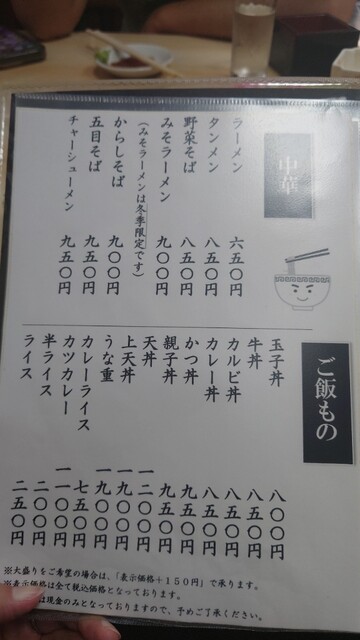 中華
ラーメン 六五〇円
タンメン 八五〇円
野菜そば 八五〇円
みそラーメン 九〇〇円
(みそラーメンは冬季限定です)
からしそば 九〇〇円
五目そば 九五〇円
チャーシューメン 九五〇円
ご飯もの
玉子丼 八〇〇円
牛丼 八五〇円
カルビ丼 八五〇円
カレー丼 八五〇円
かつ丼 九五〇円
親子丼 九五〇円
天丼 一二〇〇円
上天丼 一九〇〇円
うな重 一九〇〇円
カレーライス 七五〇円
カツカレー 一一〇〇円
半ライス 二〇〇円
ライス 二五〇円
※大盛りをご希望の場合は、「表示価格+150円」で承ります。
※表示価格は全て税込価格となっております。
は現金のみとなっておりますので、予めご了承ください。